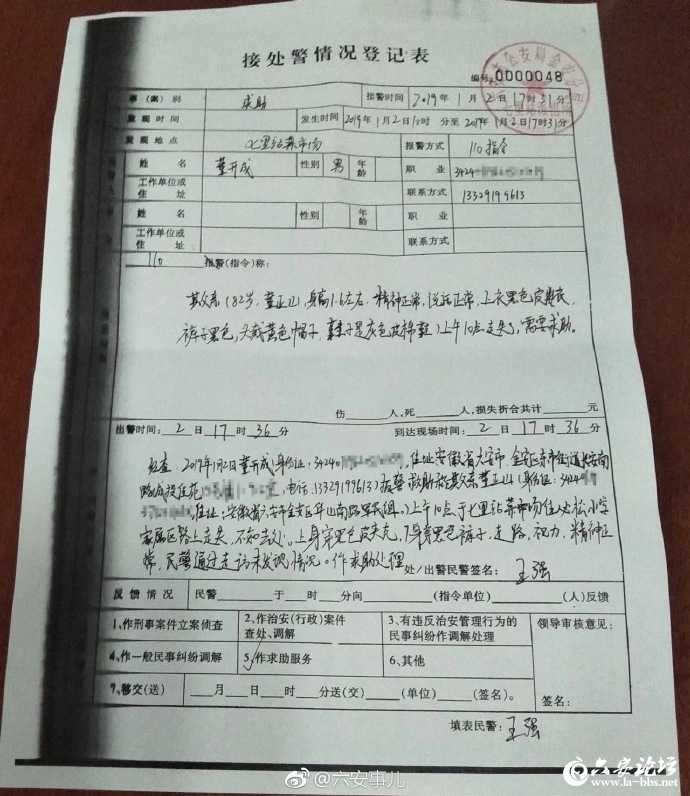 接处警情况登记表
编号 0000048
事（案）别 求助 接警时间 2019年1月2日17时31分
发现时间 发生时间 2019年1月2日10时 分至2019年1月2日17时31分
发现地点 七里站菜市场 报警方式 110指令
姓名 董开成 性别 男 年龄 职业 3424
工作单位或住址 联系方式 13329199613
姓名 性别 年龄 职业
工作单位或住址 联系方式
110 报警(指令)称：
其父亲（82岁，董正山，身高1.6左右，精神正常，说话正常，上衣黑色皮夹衣，
裤子黑色，头戴黄色帽子，鞋子是灰色皮棉鞋）上午10点走失了，需要求助。
伤 人,死 人,损失折合共计 元
出警时间：2日17时36分 到达现场时间：2日17时36分
经查，2019年1月2日董开成（身份证：3424 ，住址安徽省六安市金安区东市街道长安南
路 ，电话：13329199613）报警求助称其父亲董正山（身份证：3424
，住址：安徽省六安市金安区 山南路 ）上午10点于七里站菜市场 小学
家属区路上走失，不知去处。上身穿黑色皮夹克，下身着黑色裤子，走路，视力，精神正
常，民警通过走访未发现情况。作求助处理
处/出警民警签名： 王强
反馈情况 民警 于 时 分向 (指令单位) (人)反馈
1、作刑事案件立案侦查 2、作治安(行政)案件查处、调解 3、有违反治安管理行为的民事纠纷作调解处理 领导审核意见：
4、作一般民事纠纷调解 5、作求助服务 6、其他
7、移交(送) 月 日 时 分送(交) (单位) (签名)。 签名：
填表民警： 王强
@六安事儿
六安论坛
www.la-bbs.net